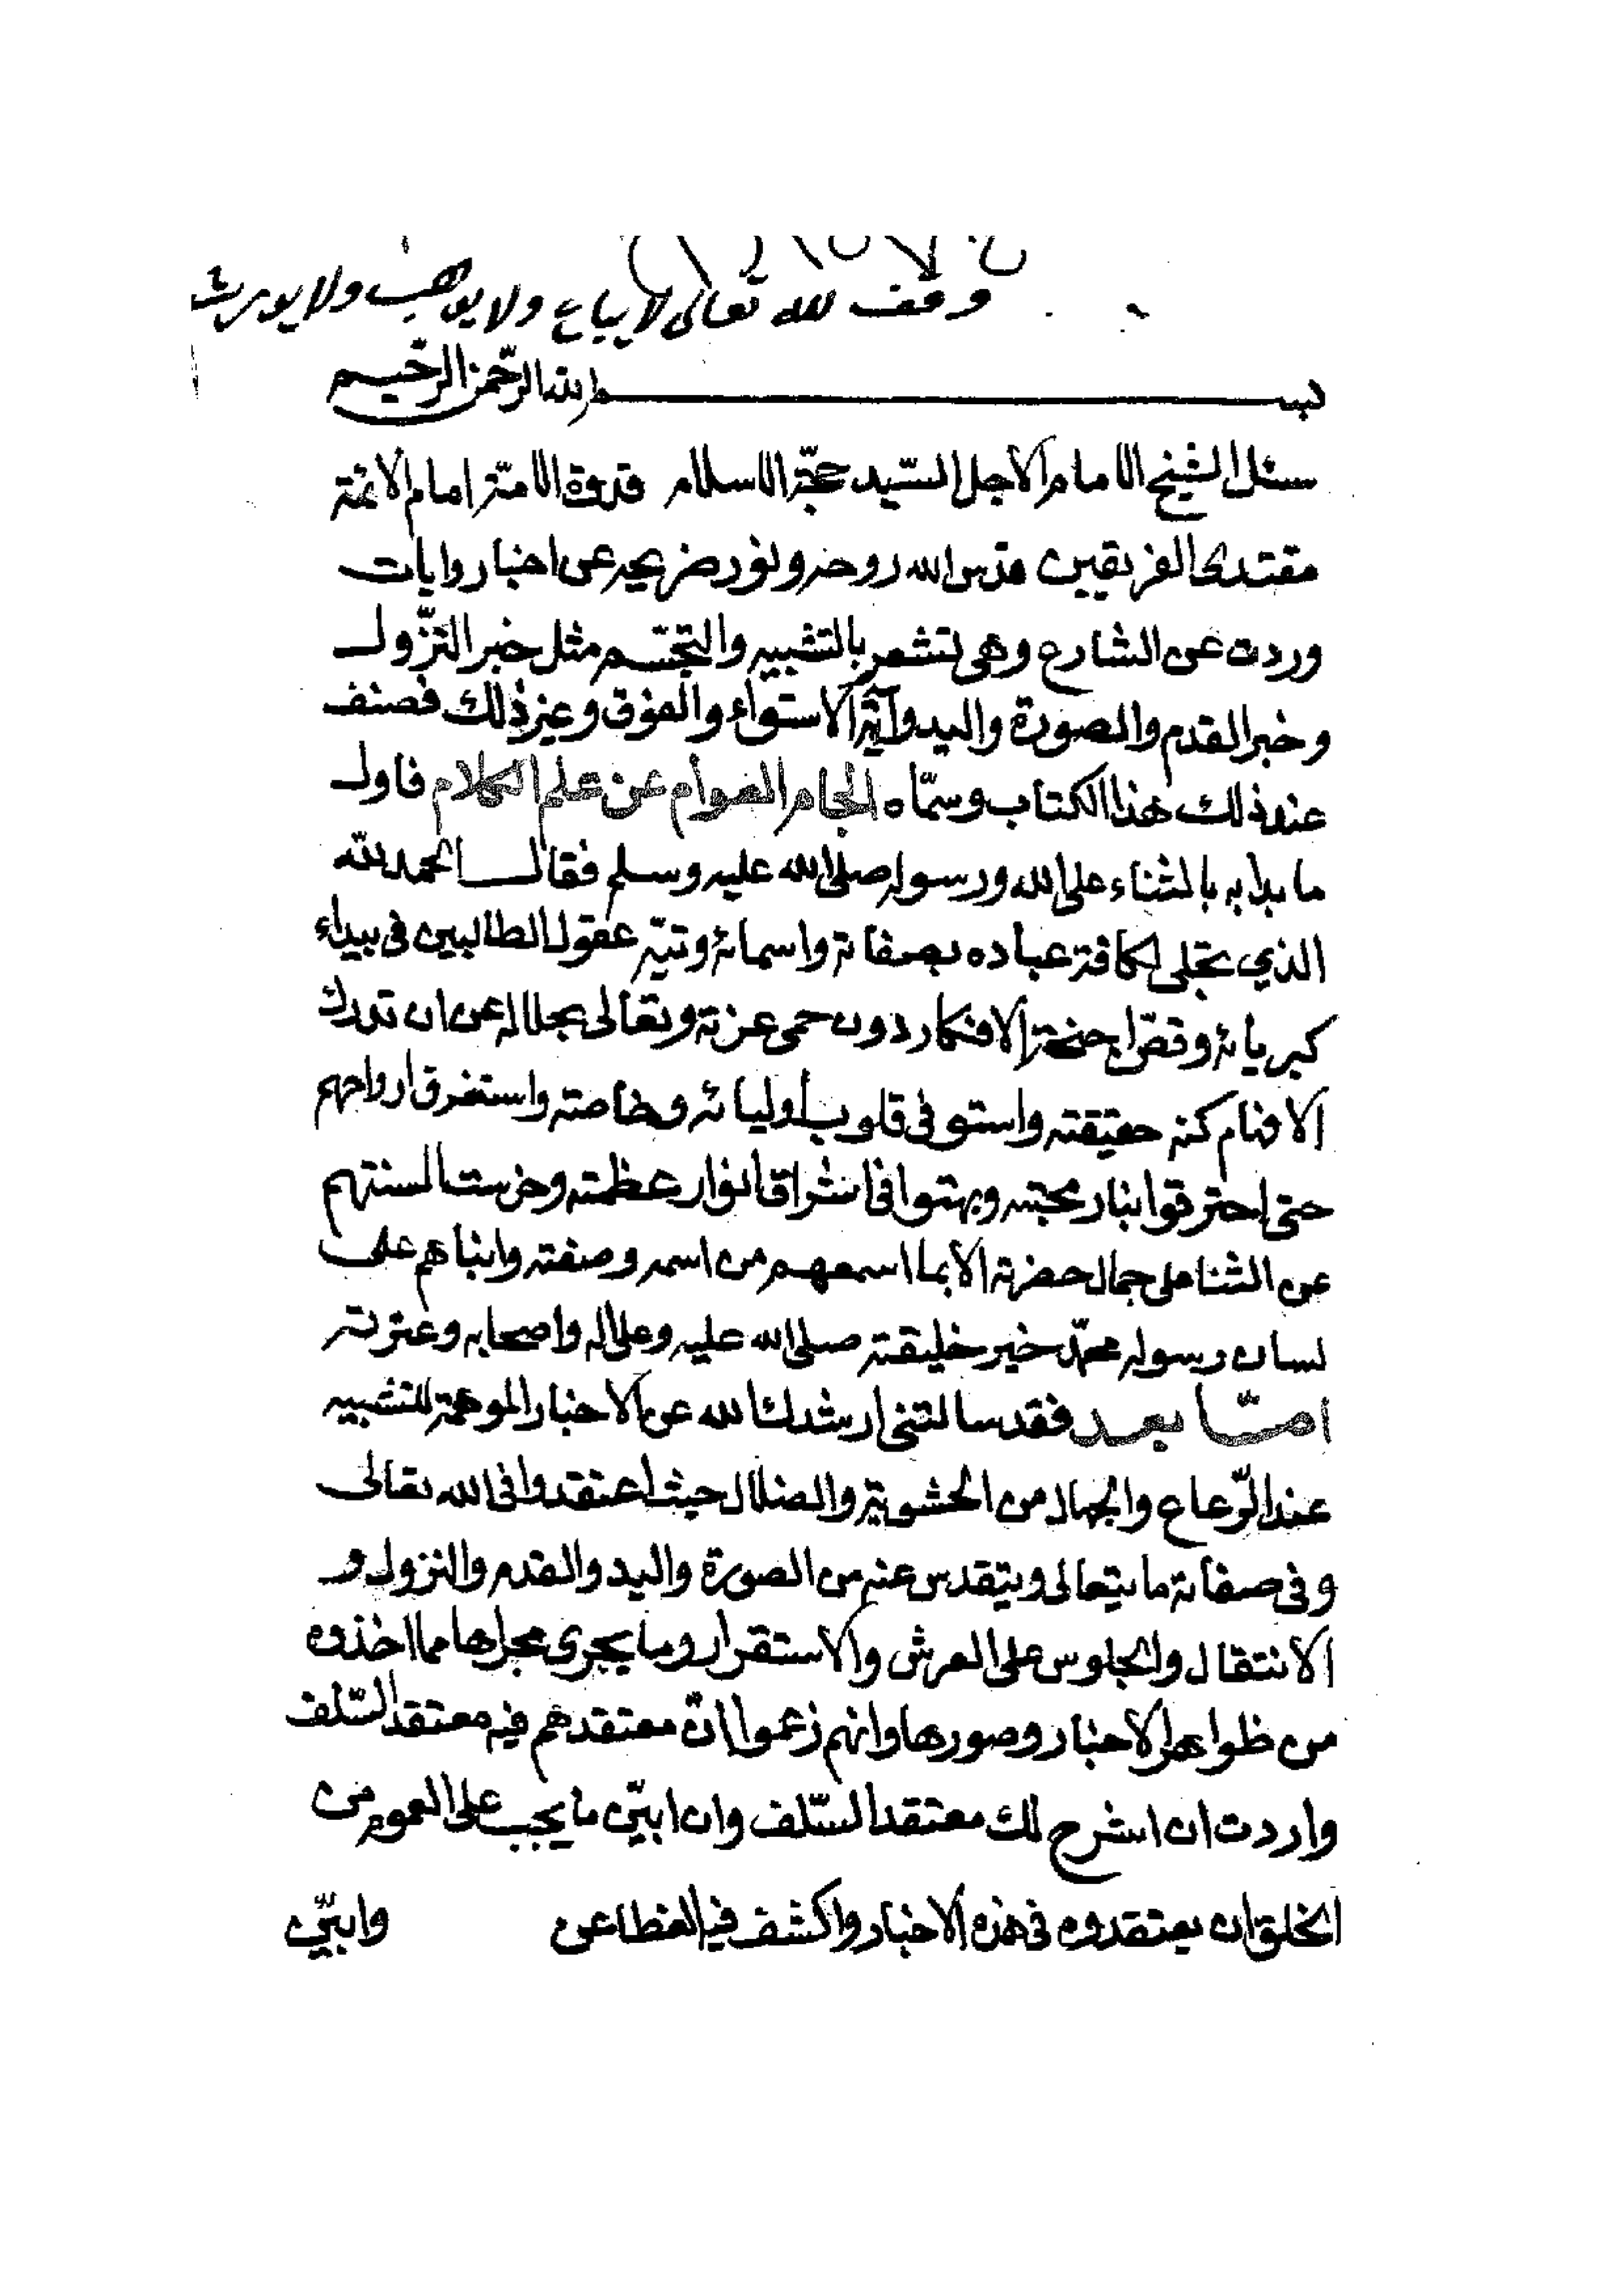 وقف لله تعالى لا يباع ولا يوهب ولا يورث
بسم الله الرحمن الرحيم
سئل الشيخ الامام الاجل السّيد حجّة الاسلام قدوة الامّة امام الائمّة
مقتدى الفريقين قدس الله روحه ونور ضريحه عن اخبار وايات
وردت عن الشارع وهى تشعر بالتشبيه والتجسّم مثل خبر النزّول
وخبر القدم والصورة واليد وآية الاستواء والفوق وغير ذلك فصنف
عند ذلك هذا الكتاب وسمّاه الجام العوام عن علم الكلام فاول
ما بدا به بالثناء على الله ورسوله صلى الله عليه وسلم فقال الحمد لله
الذي تجلى لكافة عباده بصفاته واسمائه وتيّه عقول الطالبين فى بيداء
كبريائه وقصّ اجنحة الافكار دون حمى عزته وتعالى بجلاله عن ان تدرك
الافهام كنه حقيقته واستوفى قلوب أوليائه وخاصته واستغرق ارواحهم
حتى احترقوا بنار محبته وبهتوا فى اشراق أنوار عظمته وخرست السنتهم
عن الثنا على جمال حضرته الا بما اسمعهم من اسمه وصفته وانباهم على
لسان رسوله محمّد خير خليقته صلى الله عليه وعلى اله واصحابه وعترته
امّا بعد فقد سالتنى ارشدك الله عن الاخبار الموهمة للتشبيه
عند الرّعاع والجهال من الحشوية والضلال حيث اعتقدوا فى الله تعالى
وفى صفاته ما يتعالى ويتقدس عنه من الصورة واليد والقدم والنزول و
الانتقال والجلوس على العرش والاستقرار وما يجرى مجراها مما اخذوه
من ظواهر الاخبار وصورها وانهم زعموا انّ معتقدهم فيه معتقد السّلف
واردت ان اشرح لك معتقد السّلف وان ابيّن ما يجب على العموم من
الخلق ان يعتقدوه فى هذه الاخبار واكشف فيه الغطا عن
وابيّن